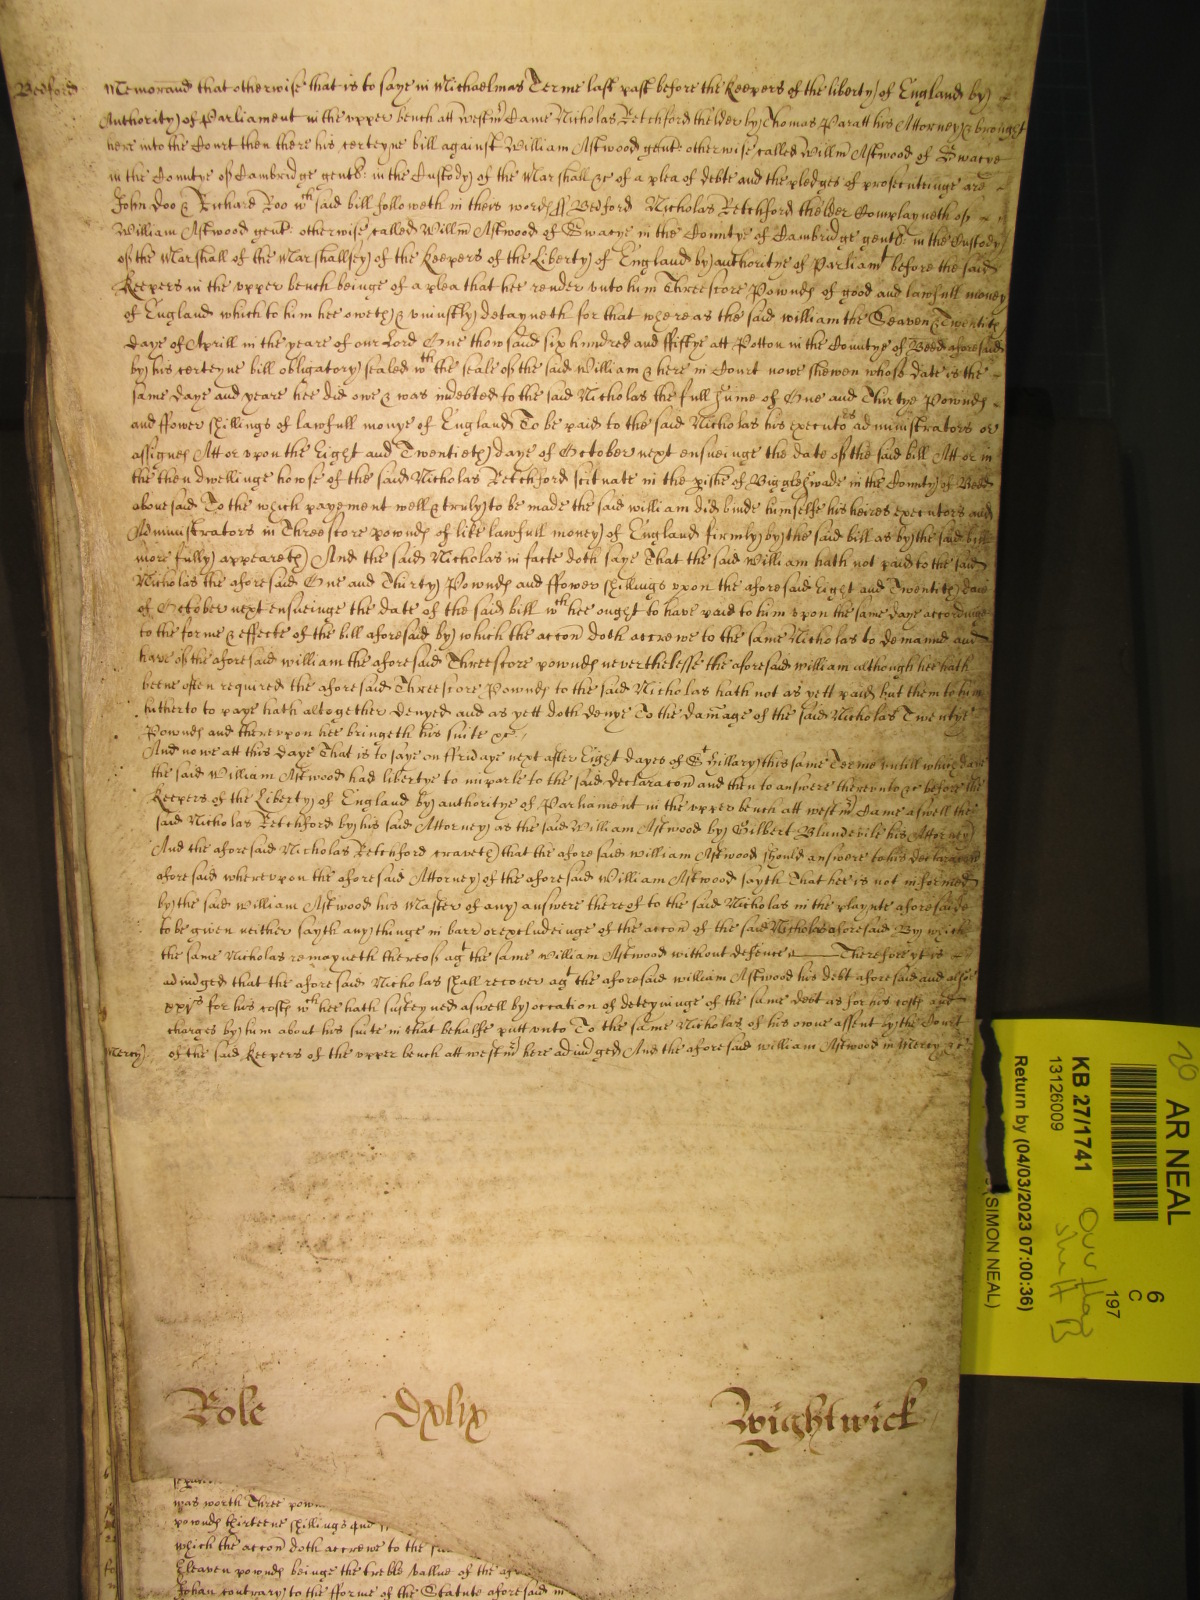 Bedford Memorand that otherwise that is to saye in Michaelmas Terme last past before the Keepers of the liberty of England by
Authority of Parliament in the upper bench att Westm Came Nicholas Retchford thelder by Thomas Paratt his Attorney & brought
here into the Court then there his certeyne bill against William Astwood gent: otherwise called Willm Astwood of Swacye
in the Countye of Cambridge gent: in the Custody of the Marshall &c of a plea of debte and the pledges of prosecuteinge are
John Doo & Richard Roo wch said bill followeth in theis words ss Bedford Nicholas Retchford thelder Complayneth of
William Astwood gent: otherwise called Willm Astwood of Swacye in the Countye of Cambridge gent: in the Custody
of the Marshall of the Marshallsey of the Keepers of the Liberty of England by authoritye of Parliamt before the said
Keepers in the upper bench beinge of a plea that hee render unto him Threescore Pownds of good and lawfull money
of England which to him hee oweth & uniustly detayneth for that whereas the said William the Seaven & Twentith
daye of Aprill in the yeare of our Lord One thowsand six hundred and fiftye att Potton in the Countye of Bedd aforesaid
by his certeyne bill obligatory sealed wth the seale of the said William & here in Court nowe shewen whose date is the
same daye and yeare hee did owe & was indebted to the said Nicholas the full sume of One and Thirtye Pownds
and ffower shillings of lawfull monye of England To be paid to the said Nicholas his executors administrators or
assignes Att or upon the Eight and Twentieth daye of October next ensueinge the date of the said bill Att or in
the then dwellinge howse of the said Nicholas Retchford scituate in the pishe of Biggleswade in the County of Bedd
abovesaid To the which payement well & truly to be made the said William did binde himselfe his heires executors and
Administrators in Threescore pownds of like lawfull money of England firmly by the said bill as by the said bill
more fully appeareth And the said Nicholas in facte doth saye That the said William hath not paid to the said
Nicholas the aforesaid One and Thirty Pownds and ffower shillings upon the aforesaid Eight and Twentieth daie
of October next ensueinge the date of the said bill wch hee ought to have paid to him upon the same daye accordinge
to the forme & effecte of the bill aforesaid by which the accon doth accrewe to the same Nicholas to demannd and
have of the aforesaid William the aforesaid Threescore pownds neverthelesse the aforesaid William although hee hath
beene often required the aforesaid Threescore Pownds to the said Nicholas hath not as yett paid but them to him
hitherto to paye hath altogether denyed and as yett doth denye To the damage of the said Nicholas Twentye
Pownds and thereupon hee bringeth his suite &c
And nowe att this daye That is to saye on ffridaye next after Eight dayes of St Hillary this same Terme untill which daye
the said William Astwood had libertye to imparle to the said declaracon and then to answere thereunto &c before the
Keepers of the Liberty of England by authoritye of Parliament in the upper bench att Westm Came aswell the
said Nicholas Retchford by his said Attorney as the said William Astwood by Gilbert Blundevile his Attorney
And the aforesaid Nicholas Retchford craveth that the aforesaid William Astwood should answere to his declaracon
aforesaid whereupon the aforesaid Attorney of the aforesaid William Astwood sayth That hee is not informed
by the said William Astwood his Master of any answere thereof to the said Nicholas in the playnte aforesaide
to be given neither sayth any thinge in barr or excludeinge of the accon of the said Nicholas aforesaid By which
the same Nicholas remayneth thereof agt the same William Astwood without defence Therefore yt is
adiudged that the aforesaid Nicholas shall recover agt the aforesaid William Astwood his debt aforesaid and alsoe
xxjs for his costs wch hee hath susteyned aswell by occation of deteyninge of the same debt as for his costs and
charges by him about his suite in that behalfe putt unto To the same Nicholas of his owne assent by the Court
Mercy of the said Keepers of the upper bench att Westm here adiudged And the aforesaid William Astwood in Mercy &c
Role dxlix Wightwick
was worth Three pow
pownds thirteene shillings and
which the accon doth accrewe to the
Eleaven pownds beinge the treble vallue of the
Johan contrary to the fforme of the Statute aforesaid in
20
AR NEAL
6
C
197
KB 27/1741
13126009
Return by (04/03/2023 07:00:36)
(SIMON NEAL)